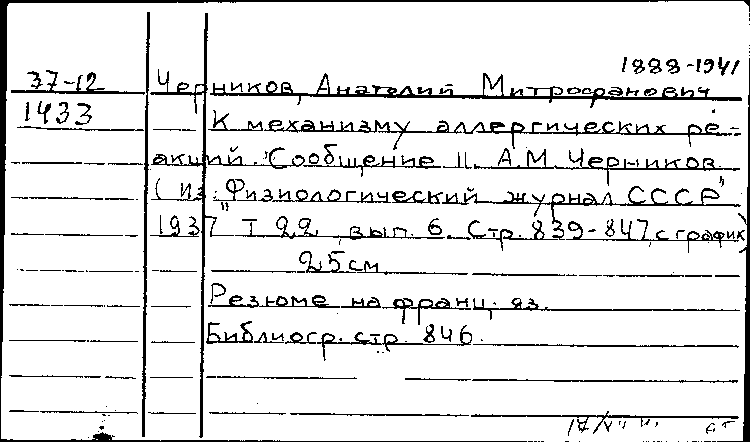 1888-1941
37-12 Черников, Анатолий Митрофанович
1433 К механизму аллергических ре-
акций. Сообщение II. А.М. Черников.
(Из: "Физиологический журнал СССР"
1937 Т 22, вып. 6. Стр. 839-847, с график)
25 см.
Резюме на франц. яз.
Библиогр. стр. 846.